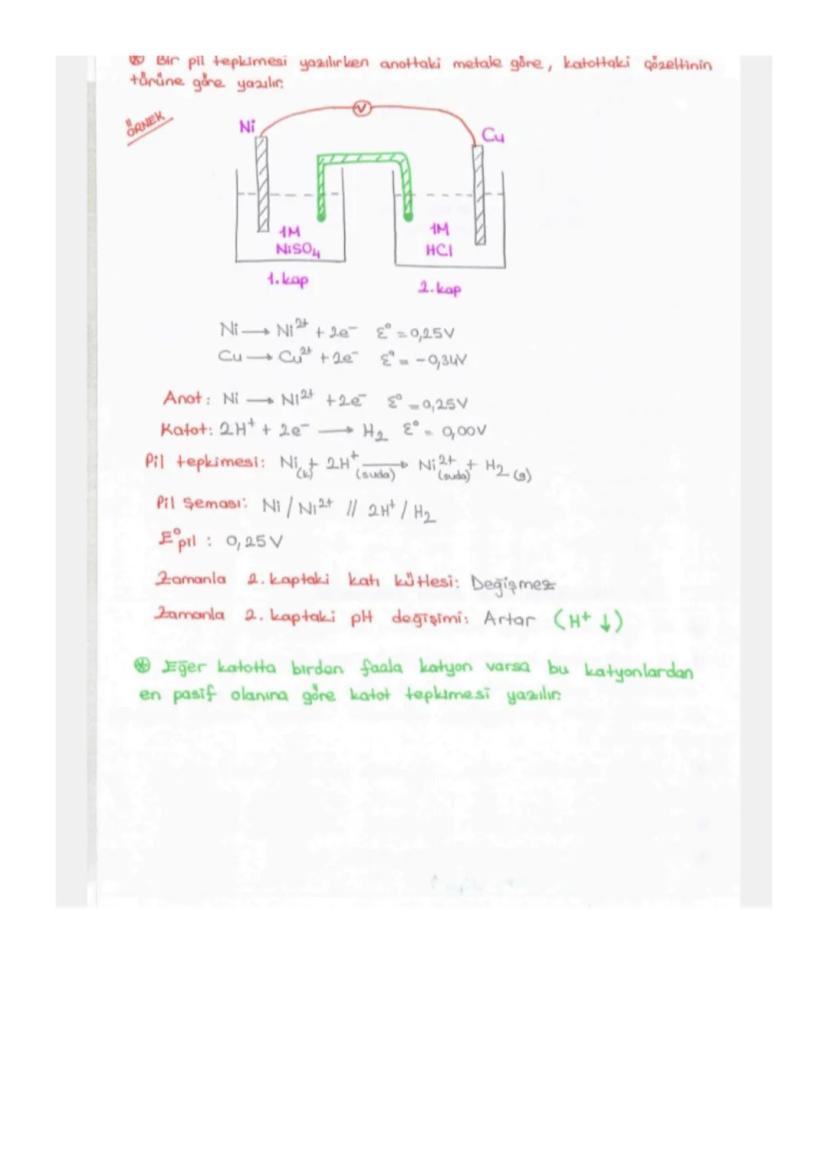 ⊛ Bir pil tepkimesi yazılırken anottaki metale göre, katottaki çözeltinin
türüne göre yazılır.
ÖRNEK
V
Ni
Cu
1M
NiSO₄
1M
HCl
1.kap
2.kap
Ni → Ni²⁺ + 2e⁻ Ɛ° = 0,25V
Cu → Cu²⁺ + 2e⁻ Ɛ° = -0,34V
Anot: Ni → Ni²⁺ + 2e⁻ Ɛ° = 0,25V
Katot: 2H⁺ + 2e⁻ → H₂ Ɛ° = 0,00V
Pil tepkimesi: Ni(k) + 2H⁺(suda) → Ni²⁺(suda) + H₂(g)
Pil Şeması: Ni / Ni²⁺ // 2H⁺ / H₂
E°pil : 0,25V
Zamanla 2.kaptaki katı kütlesi: Değişmez
Zamanla 2.kaptaki pH değişimi: Artar (H⁺ ↓)
⊛ Eğer katotta birden faala katyon varsa bu katyonlardan
en pasif olanına göre katot tepkimesi yazılır.